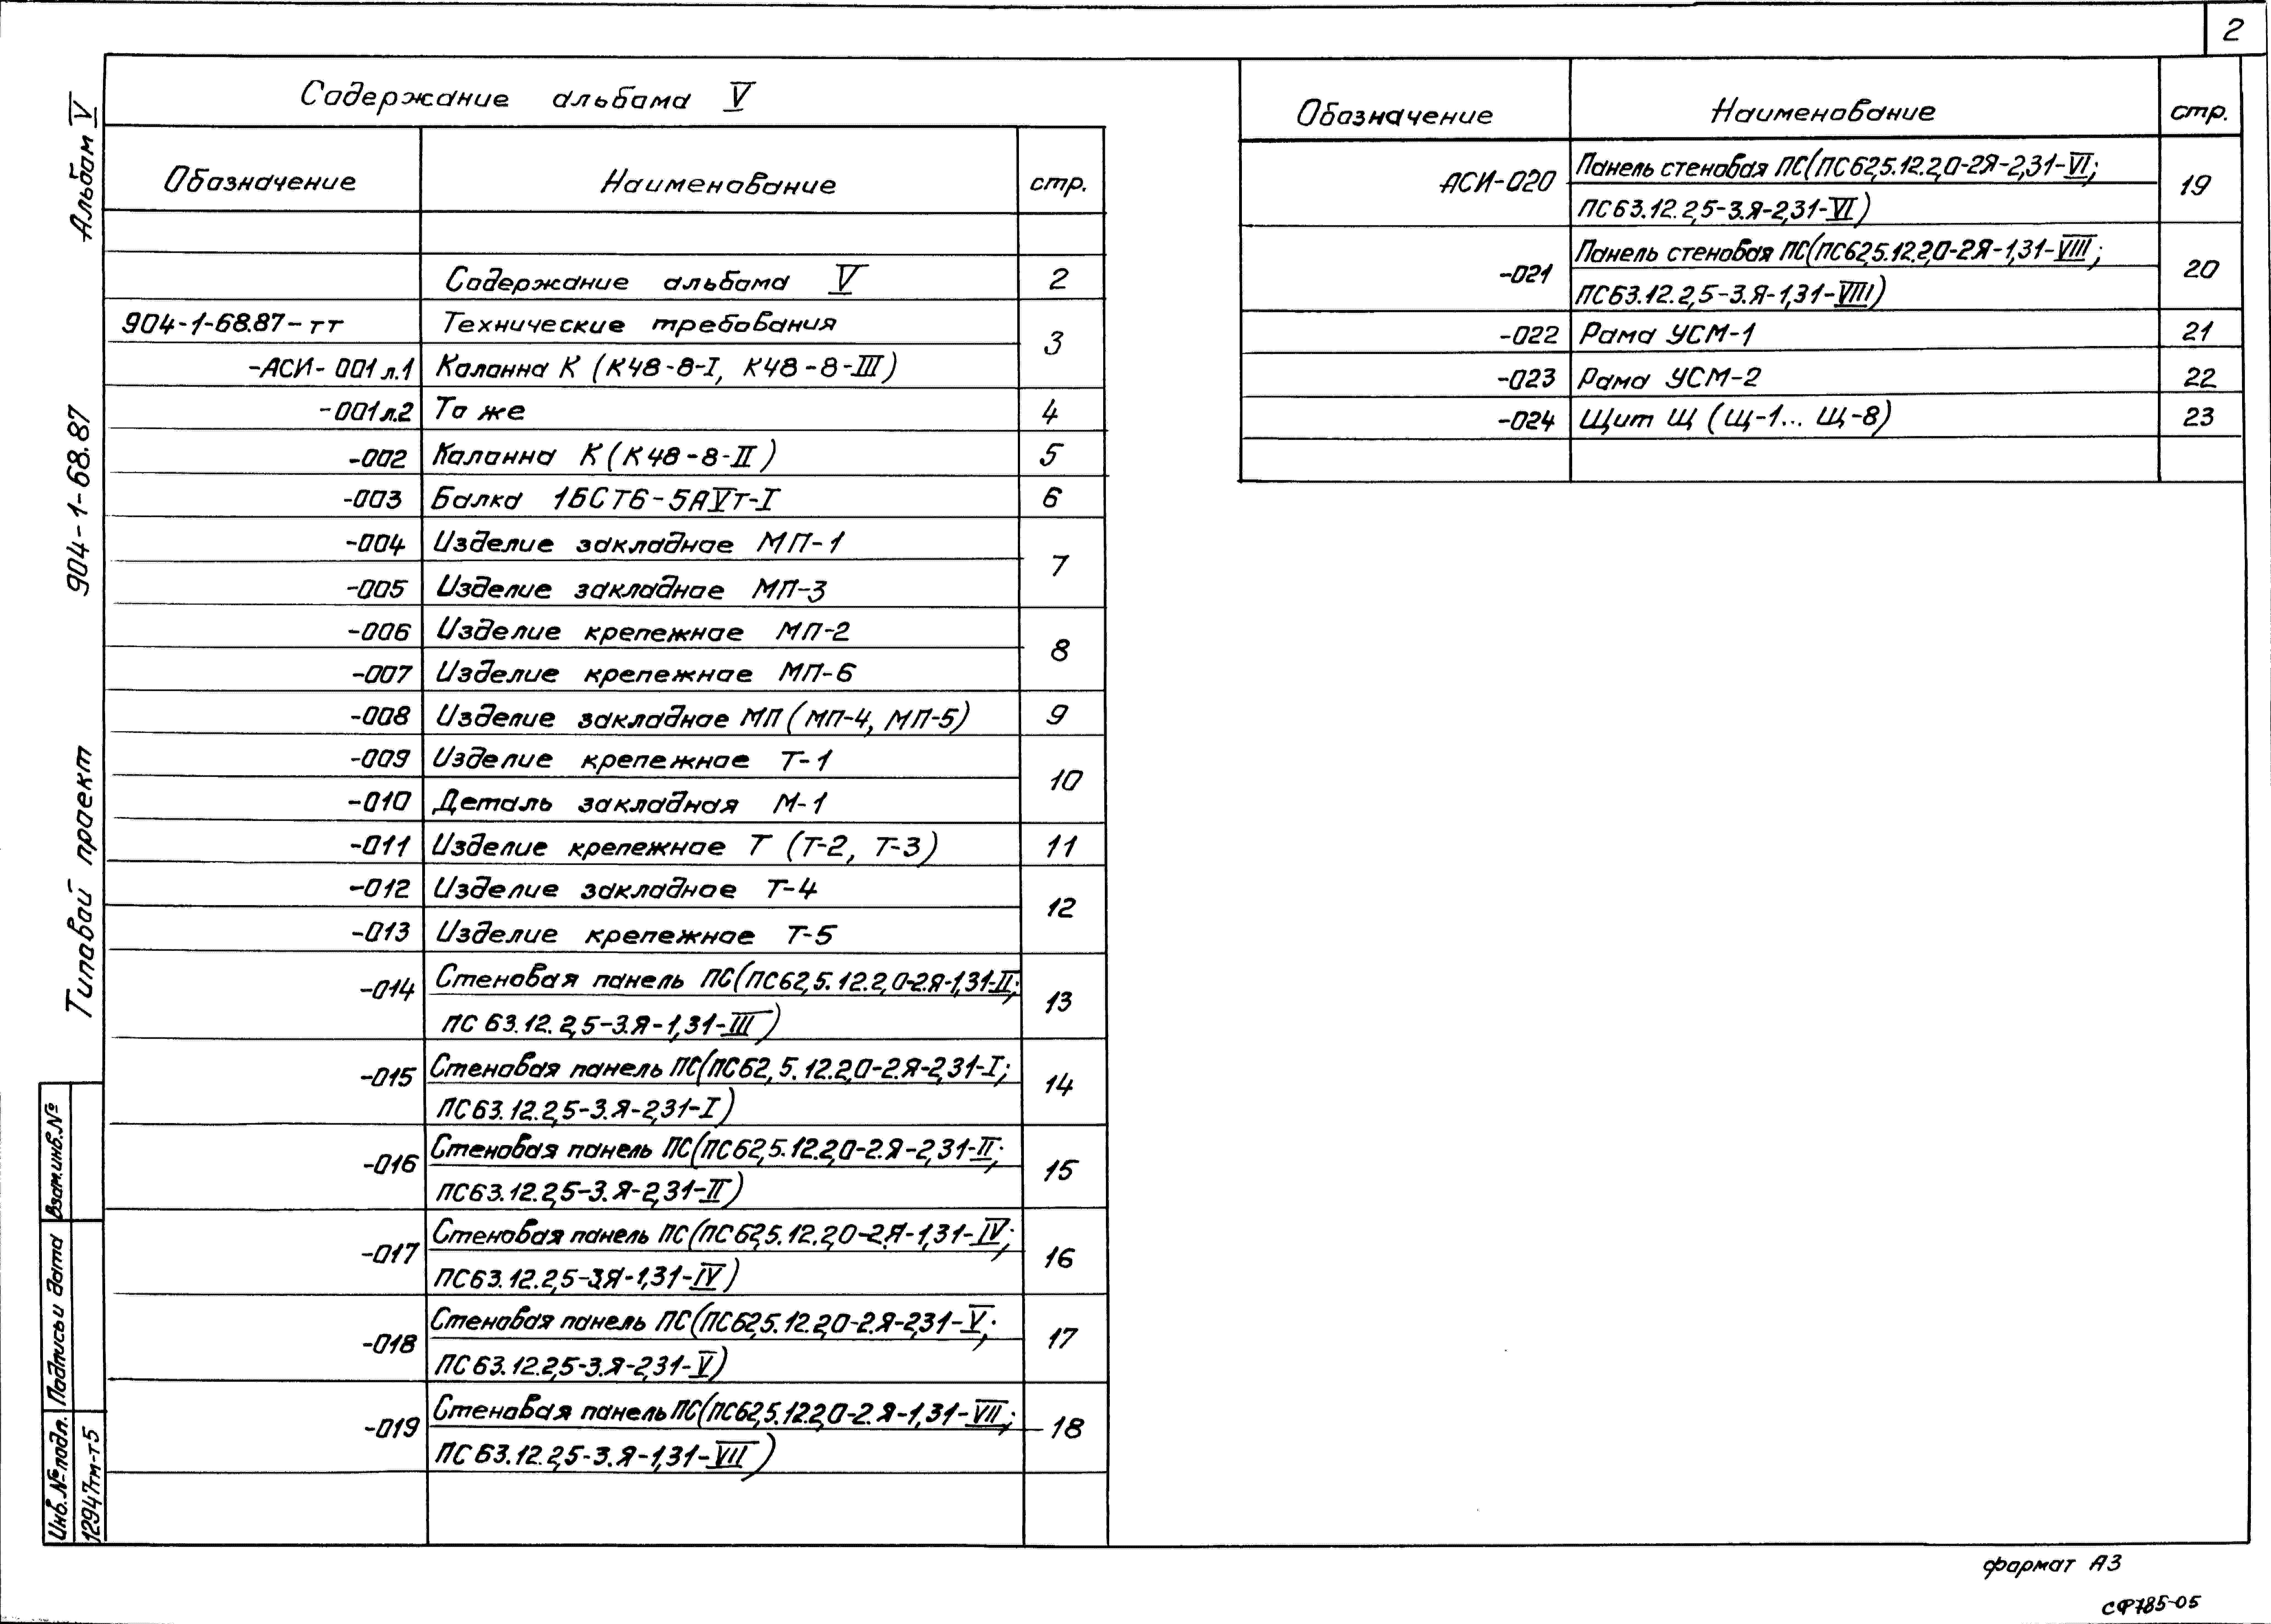 2
Содержание альбома V
Обозначение Наименование стр.
Содержание альбома V 2
904-1-68.87-ТТ Технические требования 3
-АСИ-001 л.1 Колонна К (К48-8-I, К48-8-III)
-001 л.2 То же 4
-002 Колонна К (К48-8-II) 5
-003 Балка 1БСТ6-5АVТ-I 6
-004 Изделие закладное МП-1 7
-005 Изделие закладное МП-3
-006 Изделие крепежное МП-2 8
-007 Изделие крепежное МП-6
-008 Изделие закладное МП (МП-4, МП-5) 9
-009 Изделие крепежное Т-1 10
-010 Деталь закладная М-1
-011 Изделие крепежное Т (Т-2, Т-3) 11
-012 Изделие закладное Т-4 12
-013 Изделие крепежное Т-5
-014 Стеновая панель ПС(ПС62,5.12.2,0-2.Я-1,31-II; 13
ПС 63.12.2,5-3.Я-1,31-III)
-015 Стеновая панель ПС(ПС62,5.12.2,0-2.Я-2,31-I; 14
ПС63.12.2,5-3.Я-2,31-I)
-016 Стеновая панель ПС(ПС62,5.12.2,0-2.Я-2,31-II; 15
ПС63.12.2,5-3.Я-2,31-II)
-017 Стеновая панель ПС(ПС62,5.12.2,0-2.Я-1,31-IV; 16
ПС63.12.2,5-3.Я-1,31-IV)
-018 Стеновая панель ПС(ПС62,5.12.2,0-2.Я-2,31-V; 17
ПС63.12.2,5-3.Я-2,31-V)
-019 Стеновая панель ПС(ПС62,5.12.2,0-2.Я-1,31-VII; 18
ПС63.12.2,5-3.Я-1,31-VII)
Обозначение Наименование стр.
АСИ-020 Панель стеновая ПС(ПС62,5.12.2,0-2Я-2,31-VI; 19
ПС63.12.2,5-3.Я-2,31-VI)
-021 Панель стеновая ПС(ПС62,5.12.2,0-2Я-1,31-VIII; 20
ПС63.12.2,5-3.Я-1,31-VIII)
-022 Рама УСМ-1 21
-023 Рама УСМ-2 22
-024 Щит Щ (Щ-1... Щ-8) 23
Типовой проект 904-1-68.87 Альбом V
Взам.инв.№
Подпись и дата
Инв.№ подл.
12947тм-т5
формат А3
СФ785-05